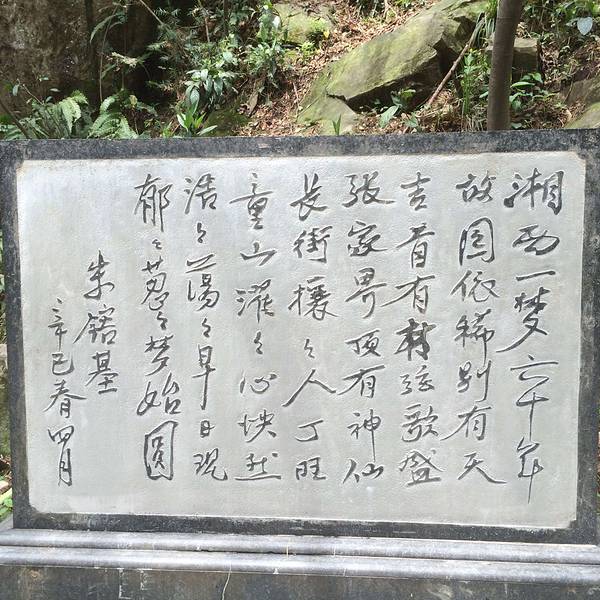 湘西一梦六十年
故园依稀别有天
吉首有材弦歌盛
张家界顶有神仙
长街攘々人丁旺
童山濯々心怏然
浩々荡々早日现
郁々葱々梦始圆
朱镕基
辛巳春四月